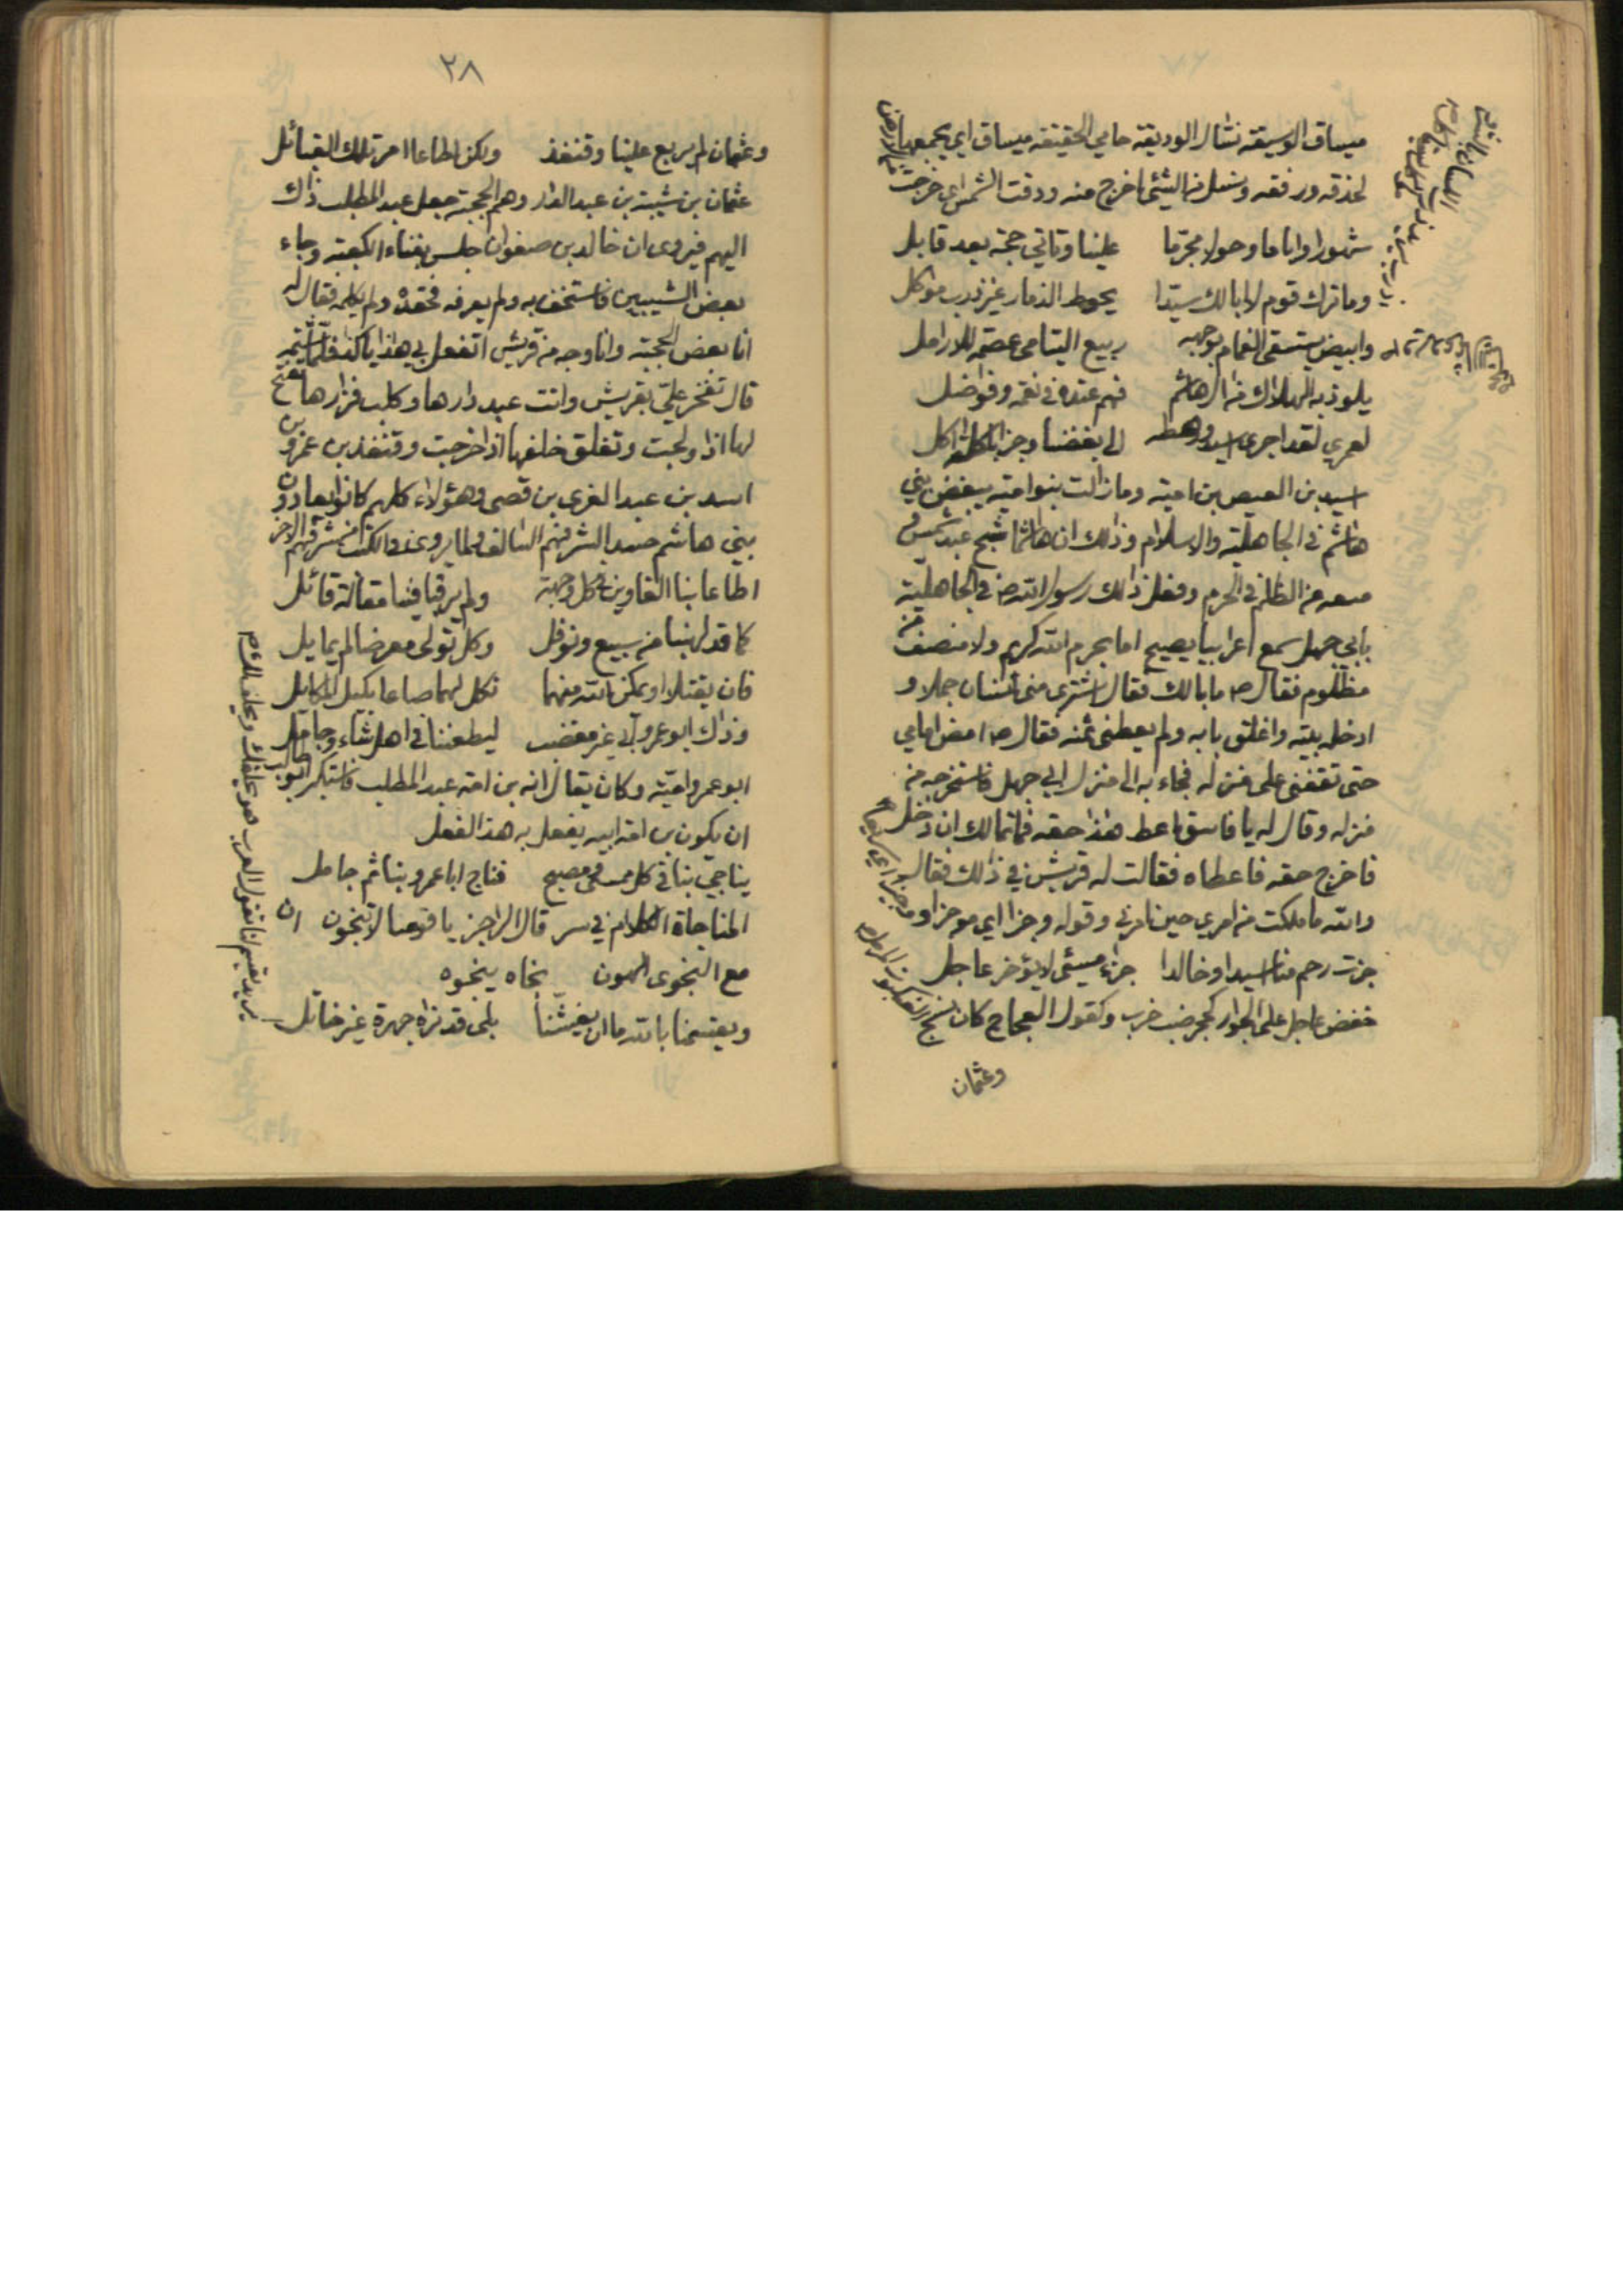 ميساق الوسيقة نشال الوديقة حامي الحقيقة ميساق اي يجمعها
لحذقه ورفقه ونسل من الشئ اخرج منه وودقت الشمس اي خرجت
شهورا واياما وحولا مجرما علينا وتاتي حجة بعد قابل
وما ترك قوم لا ابالك سيدا يحوط الذمار غير ذرب موكل
وابيض يستسقى الغمام بوجهه ربيع اليتامى عصمة للارامل
يلوذ به الهلاك من ال هاشم فهم عنده في نعمة وفواضل
لعمري لقد اجرى اسيد ورهطه الى بغضنا وجزا باكلة اكل
اسيد بن العيص بن امية وما زالت بنو امية يبغض بني
هاشم في الجاهلية والاسلام وذلك ان هاشما شج عبد شمس و
منعه من الظلم في الحرم وفعل ذلك رسول الله ص في الجاهلية
بابي جهل سمع اعرابيا يصيح اما بحرم الله كريم ولا منصف من
مظلوم فقال ص ما بالك فقال اشترى مني انسان جملا و
ادخله بيته واغلق بابه ولم يعطني ثمنه فقال ص امض امامي
حتى تقفني على منزله فجاء به الى منزل ابي جهل فاستخرجه من
منزله وقال له يا فاسق اعط هذا حقه فما تمالك ان دخل
فاخرج حقه فاعطاه فقالت له قريش في ذلك فقال
والله ما ملكت من امري حين نادني وقوله وجزا اي موجزا و
جزت رحم منا اسيدا وخالدا جزاء مسئ لا يؤخر عاجل
خفض عاجل على الجوار كجحر ضب خرب وكقول العجاج كان نسج العنكبوت المرمل
وعثمان
٢٨
وعثمان لم يربع علينا وقنفذ ولكن اطاعا امر تلك القبائل
عثمان بن شيبة بن عبد الدار وهم الحجبة جعل عبد المطلب ذاك
اليهم فيروى ان خالد بن صفوان جلس بفناء الكعبة وجاء
بعض الشيبيين فاستخف به ولم يعرفه فحقده ولم يكلمه فقال له
انا بعض الحجبة وانا وجه من قريش اتفعل بي هذا يا كذا فلما شتمه
قال تفخر علي بقريش وانت عبد دارها وكلب فزارها تفتح
لها اذا ولجت وتغلق خلفها اذا خرجت وقنفذ بن عمرو بن
اسد بن عبد العزى بن قصى وهؤلاء كلهم كانوا يعادون
بني هاشم حسد الشرفهم السالف ولما يروى في الكتب من شرفهم الاخر
اطاعا بنا الغاوين في كل وجهة ولم يرقبا فينا مقالة قائل
كما قد لقينا من سبيع ونوفل وكل تولى معرضا لم يمايل
فان يقتلا او يمكن الله منهما نكل لهما صاعا بكيل المكايل
وذاك ابو عمرو ابى غير مغضب ليطعننا في اهل شاء وجامل
ابو عمرو امية وكان يقال انه بن امة عبد المطلب فاستكبر ابو طالب
ان يكون بن امة ابيه يفعل به هذا الفعل
يناجي بنا في كل ممسى ومصبح فناج ابا عمرو بنا ثم جامل
المناجاة الكلام في سر قال الراجز يا قومنا لا تنجون ان
مع النجوى الهون نجاه ينجوه
ويقسمنا بالله ما ان يغشنا بلى قد نراه جهرة غير خاتل
يريد يقسم لنا تقول العرب هو يحلفك ويحلف لك ص